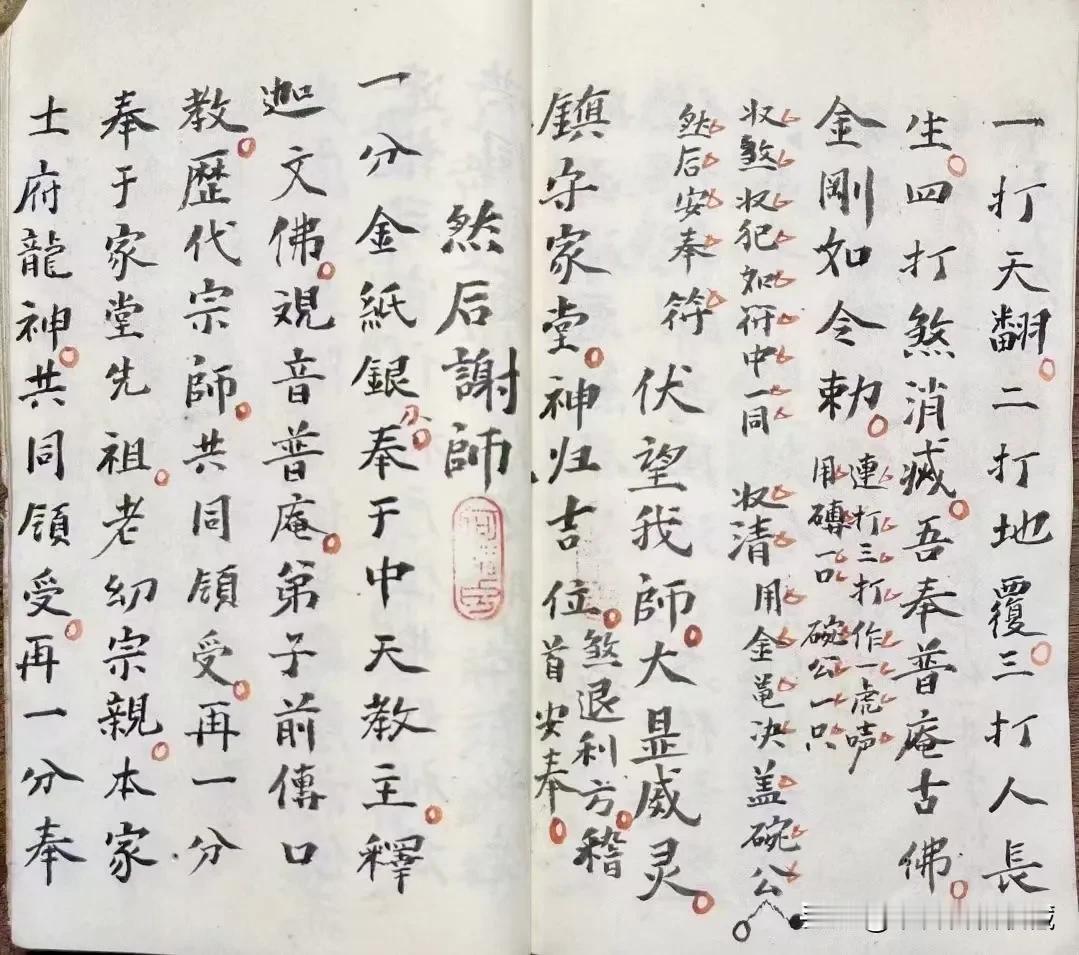 一打天翻二打地覆三打人長
生四打煞消滅吾奉普庵古佛
金剛如令勅
連打三打作一虎啼
用磚一口碗公一只
収煞収犯如符中一同
収清用金黃决盖碗公
然后安奉符
伏望我師大显威灵
鎮守家堂神归吉位
煞退利方稽
首安奉
然后謝師
一分金紙銀分奉于中天教主釋
迦文佛观音普庵弟子前傳口
教歷代宗師共同領受再一分
奉于家堂先祖老幼宗親本家
土府龍神共同領受再一分奉